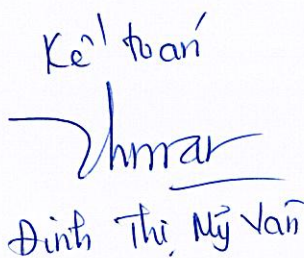 Kế toán
Đinh Thị Mỹ Vân